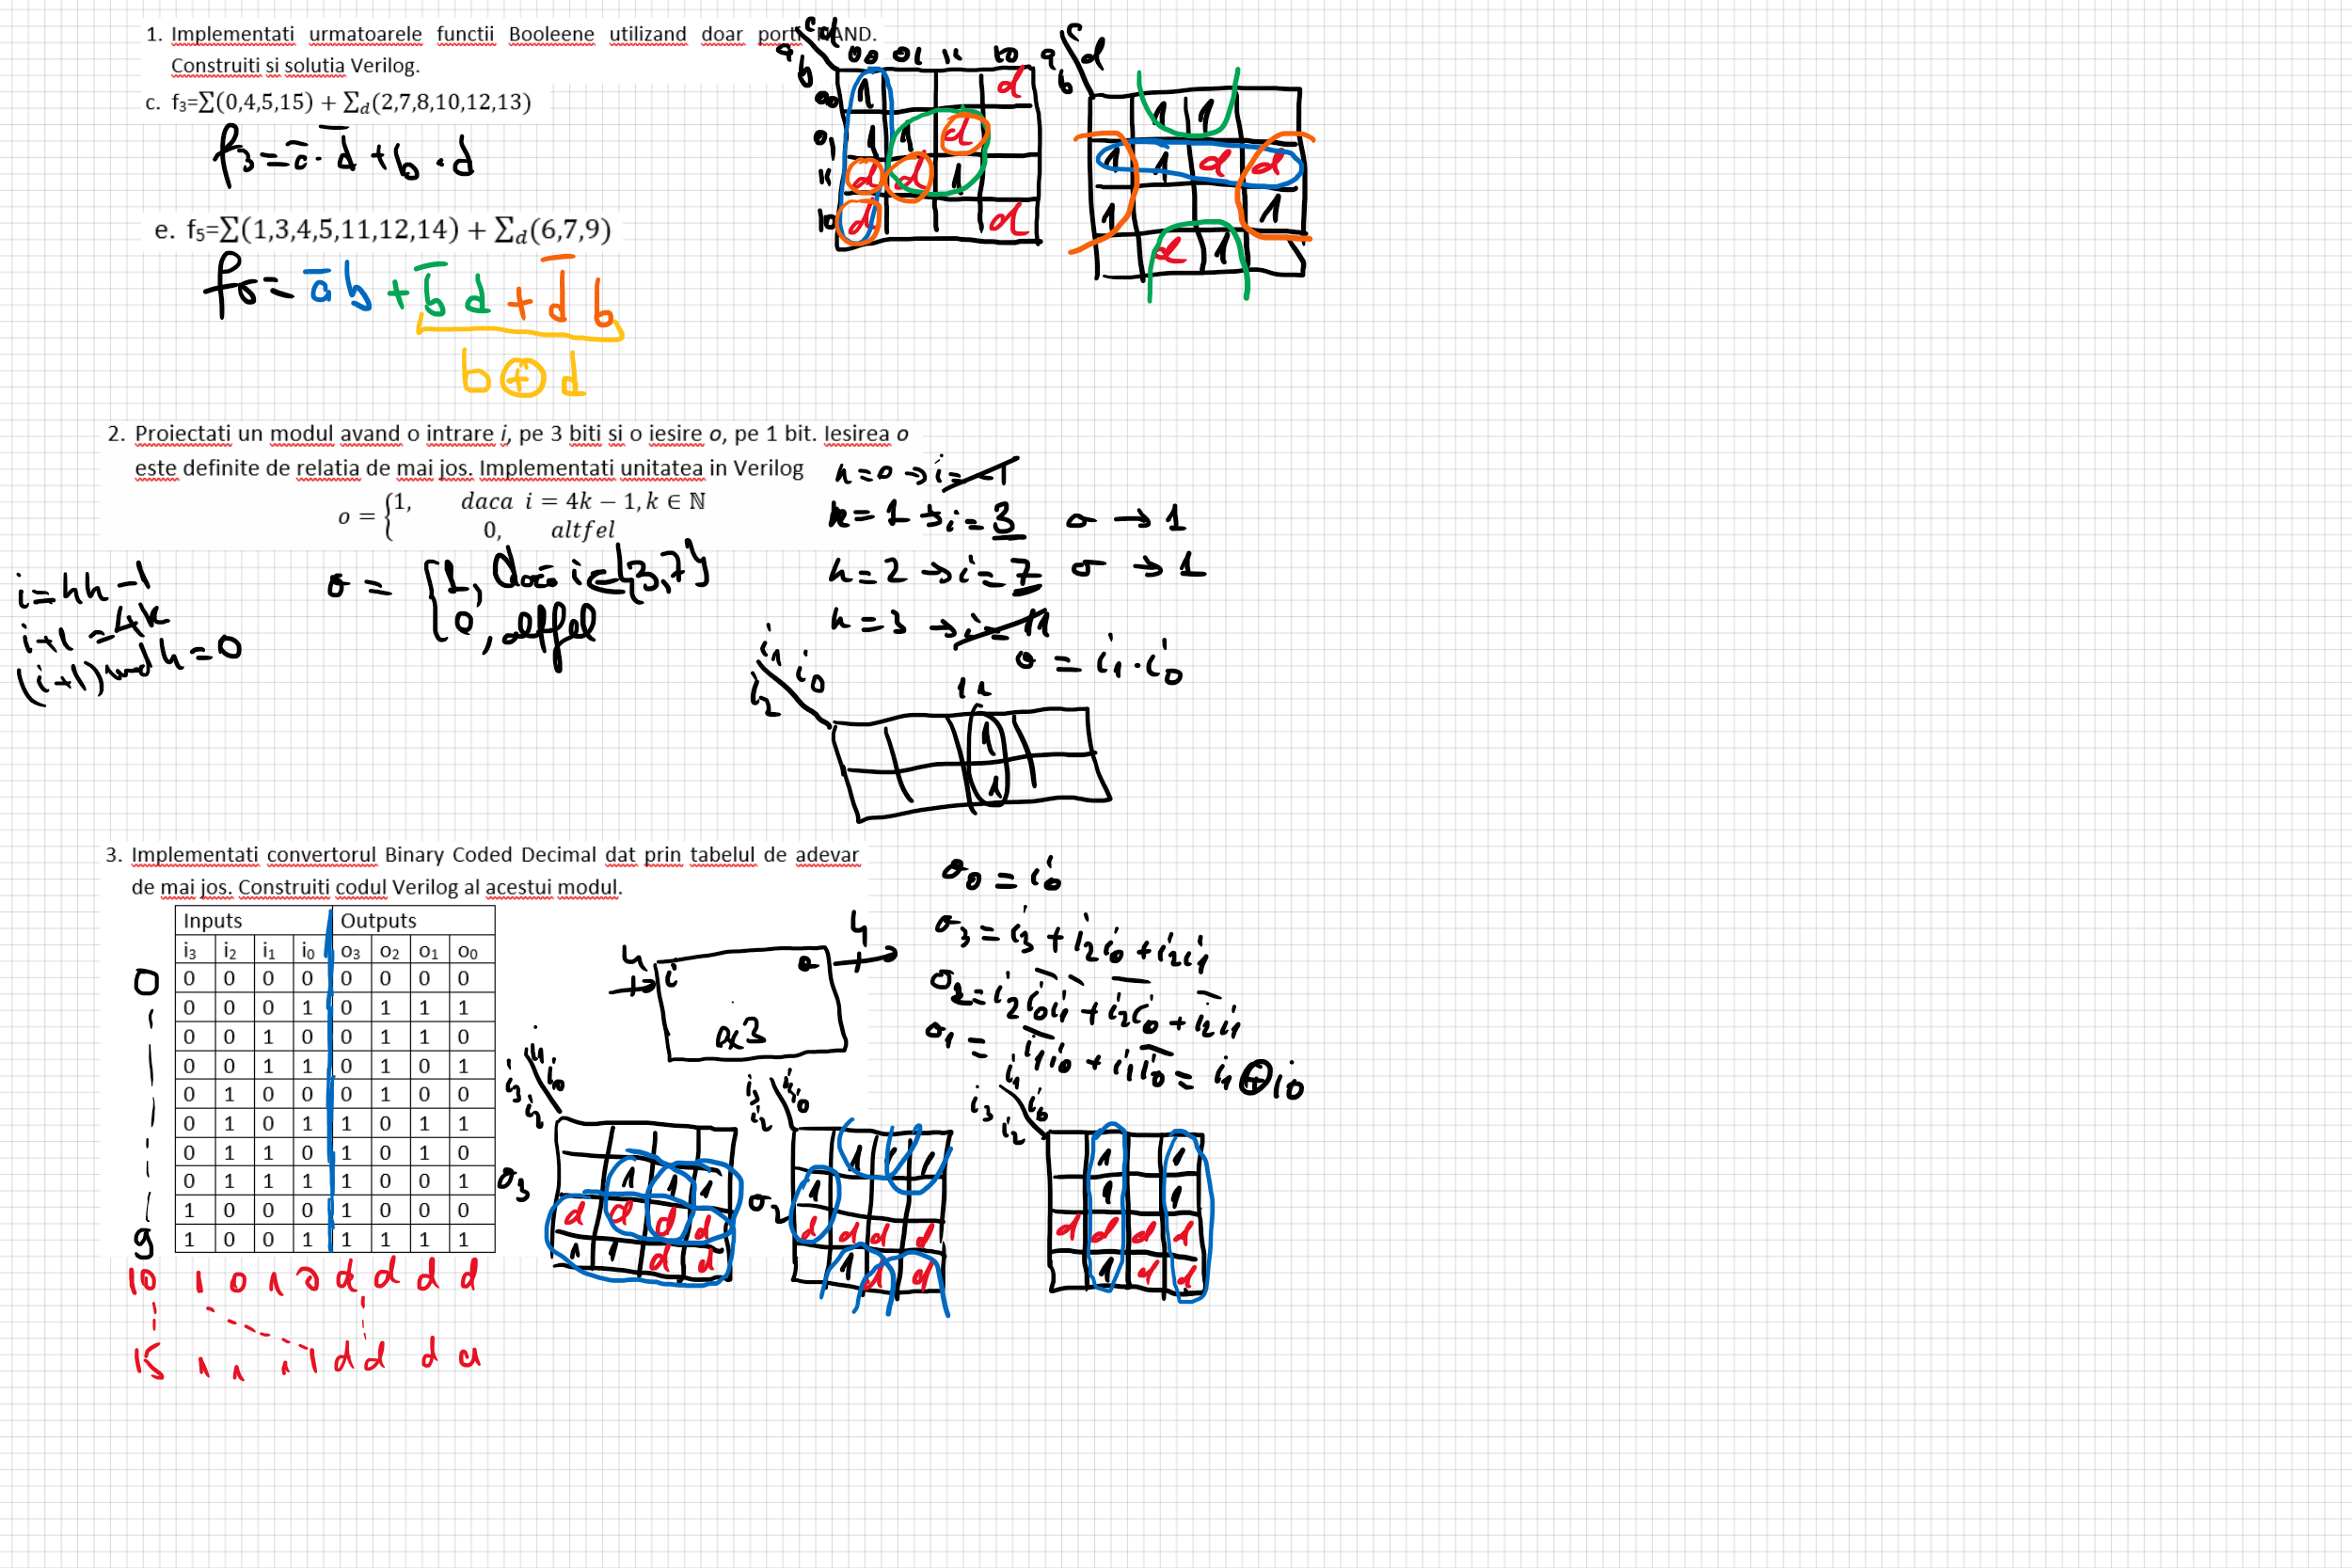 1. Implementati urmatoarele functii Booleene utilizand doar porti NAND.
Construiti si solutia Verilog.
c. f₃=∑(0,4,5,15) + ∑d(2,7,8,10,12,13)
f₃ = c̅ · d̅ + b · d
cd
ab
00 01 11 10
00 1 d
01 1 1 d
11 d d 1
10 d d
c d
a b
1 1
1 1 d d
1 1
d 1
e. f₅=∑(1,3,4,5,11,12,14) + ∑d(6,7,9)
f₅ = a̅b + b̅d + d̅b
b ⊕ d
2. Proiectati un modul avand o intrare i, pe 3 biti si o iesire o, pe 1 bit. Iesirea o
este definite de relatia de mai jos. Implementati unitatea in Verilog
o = {1, daca i = 4k − 1, k ∈ ℕ
0, altfel
k=0 → i=-1
k=1 → i=3 o → 1
k=2 → i=7 o → 1
k=3 → i=11
i=4k-1
i+1=4k
(i+1) mod 4=0
o = {1, daca i∈{3,7}
0, altfel
o = i₁·i₀
i₁ i₀
i₂
11
1
1
3. Implementati convertorul Binary Coded Decimal dat prin tabelul de adevar
de mai jos. Construiti codul Verilog al acestui modul.
Inputs Outputs
i₃ i₂ i₁ i₀ o₃ o₂ o₁ o₀
0 0 0 0 0 0 0 0 0
0 0 0 1 0 1 1 1
0 0 1 0 0 1 1 0
0 0 1 1 0 1 0 1
0 1 0 0 0 1 0 0
0 1 0 1 1 0 1 1
0 1 1 0 1 0 1 0
0 1 1 1 1 0 0 1
1 0 0 0 1 0 0 0
9 1 0 0 1 1 1 1 1
10 1 0 1 0 d d d d
15 1 1 1 1 d d d d
4 i o 4
0x3
o₀ = i₀
o₃ = i₃ + i₂i₀ + i₂i₁
o₂ = i₂i̅₀i̅₁ + i̅₂i₀ + i̅₂i₁
o₁ = i̅₁i₀ + i₁i̅₀ = i₁⊕i₀
i₁ i₀
i₃ i₂
o₃
1 1 1
d d d d
1 1 d d
i₁ i₀
i₃ i₂
o₂
1 1 1
1
d d d d
1 d d
i₁ i₀
i₃ i₂
1 1
1 1
d d d d
1 d d